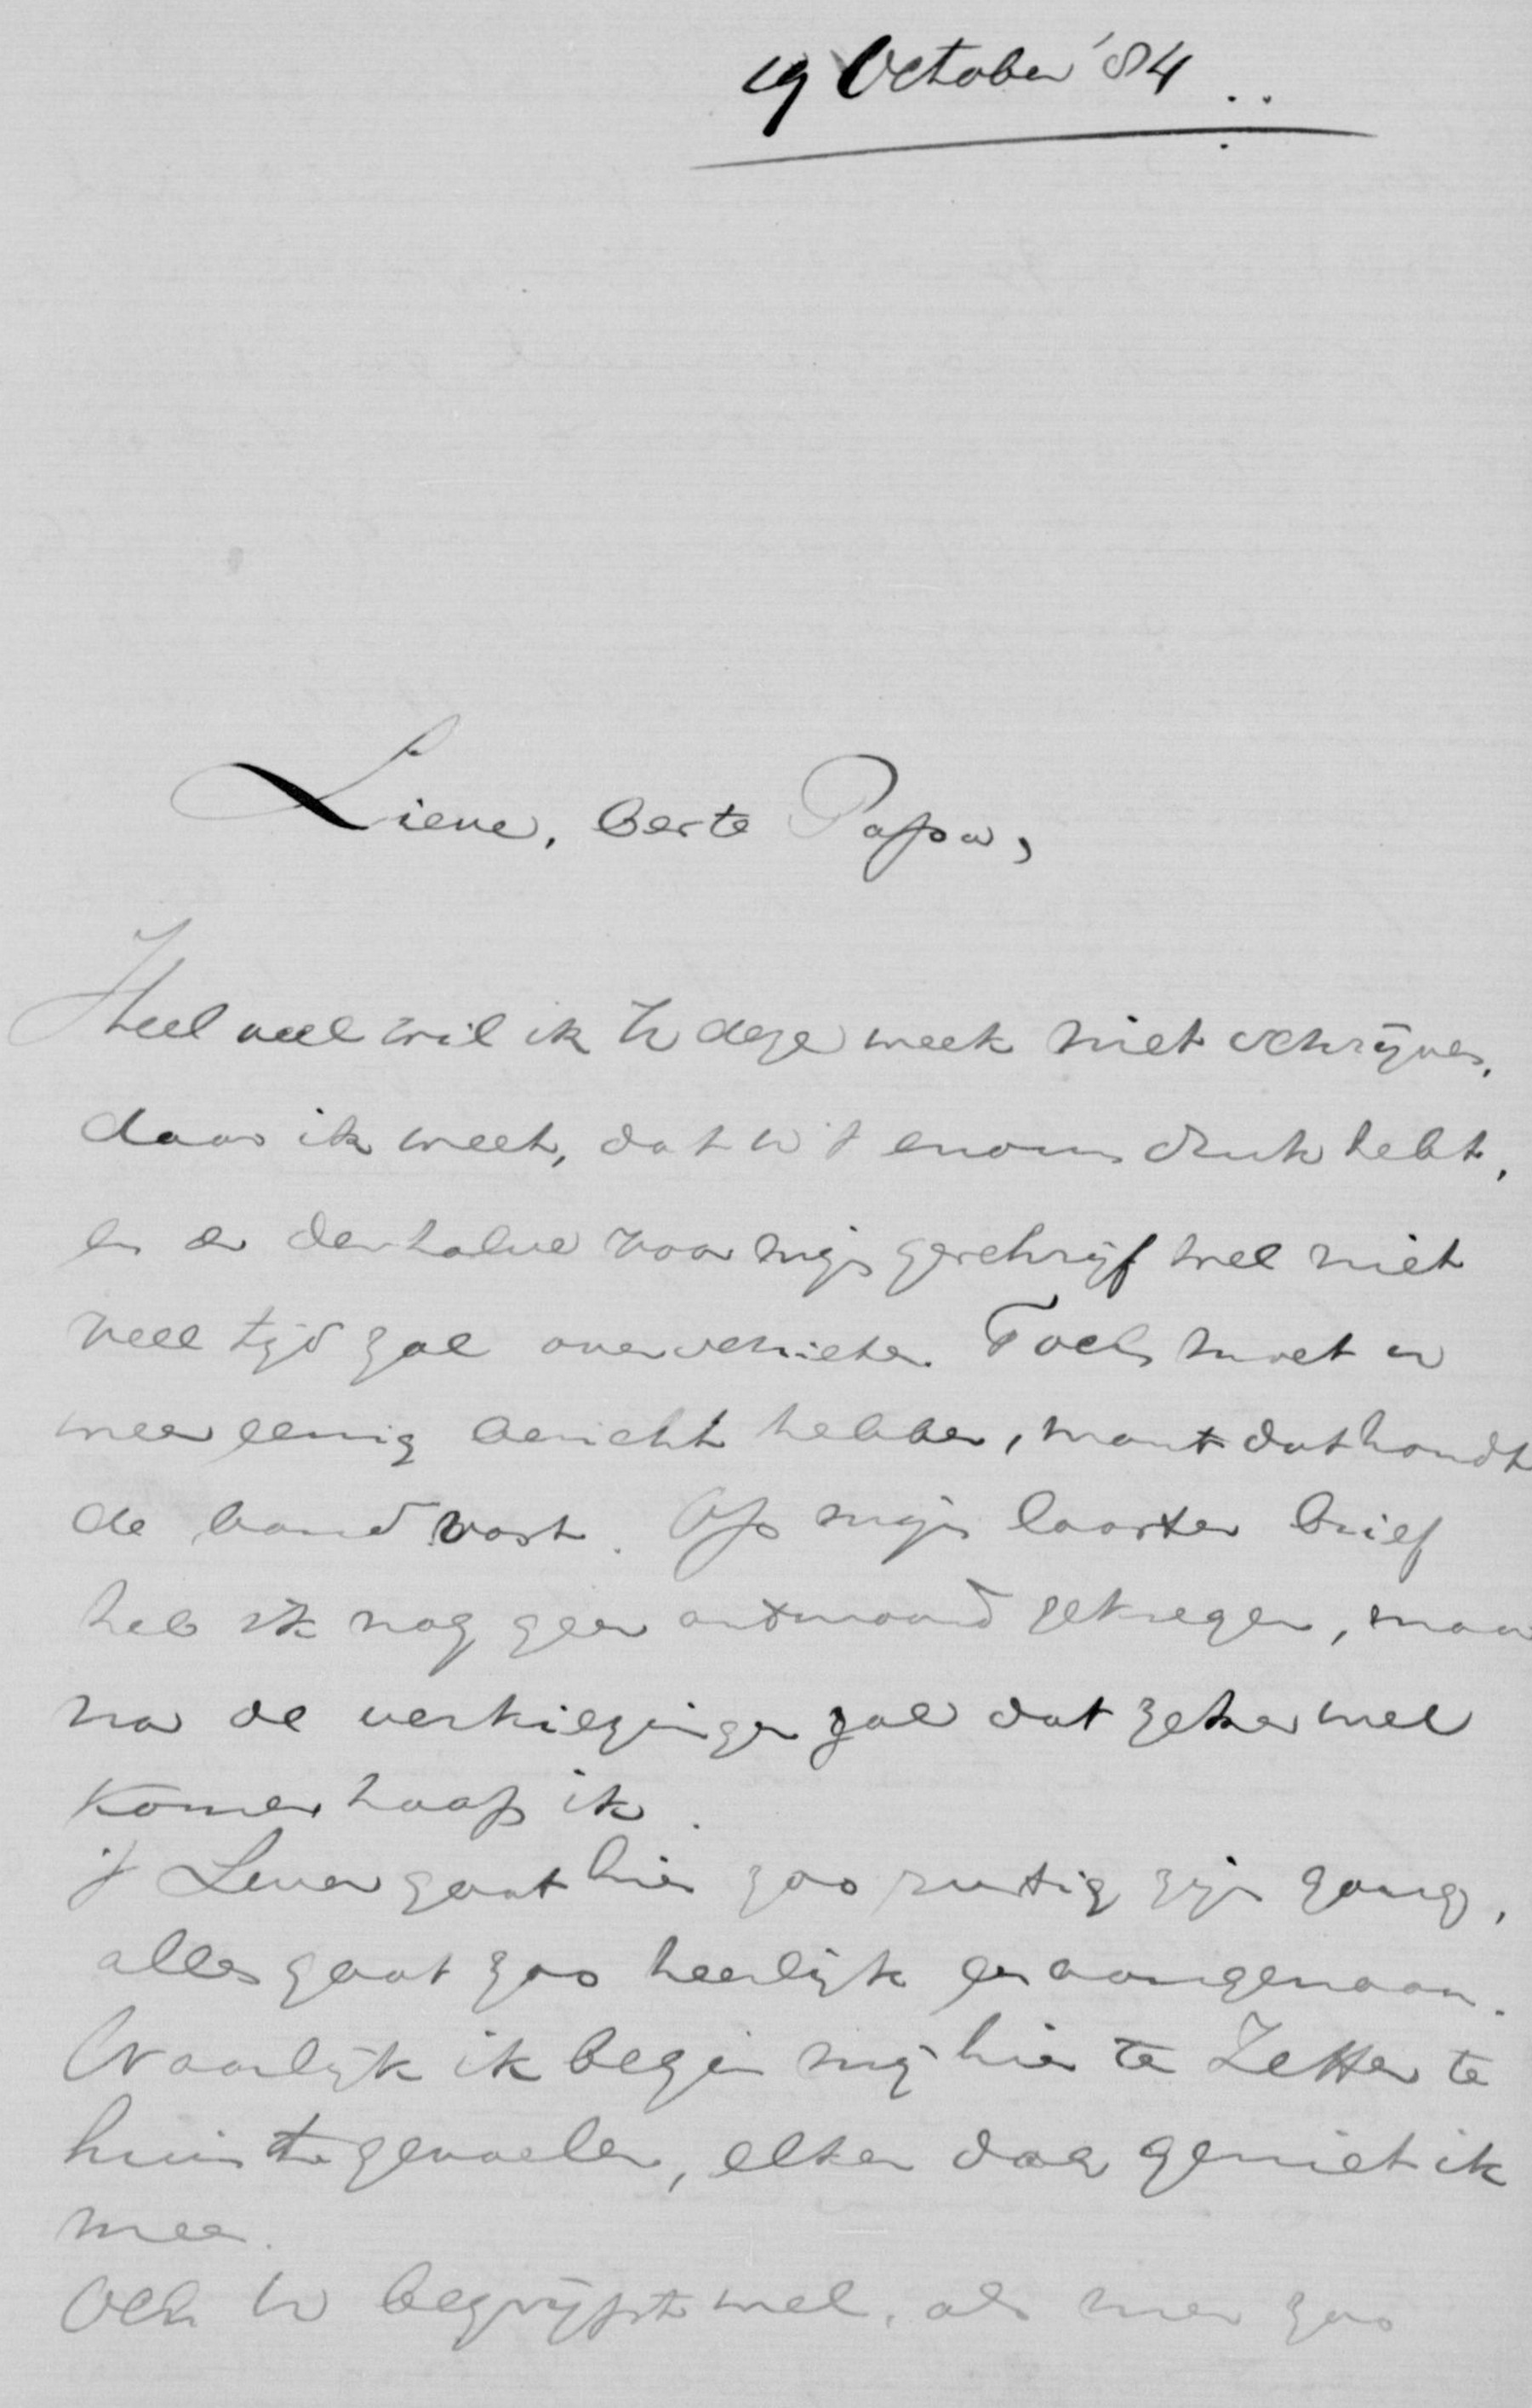 19 October '84
Lieve, beste Papa,
Heel veel wil ik U deze week niet schrijven,
daar ik weet, dat U 't enorm druk hebt,
en er derhalve voor mijn geschrijf wel niet
veel tijd zal overschieten. Toch moet u
weer eenig bericht hebben, want dat houdt
de band vast. Op mijn laatsten brief
heb ik nog geen antwoord gekregen, maar
na de verkiezingen zal dat zeker wel
komen hoop ik.
't Leven gaat hier zoo rustig zijn gang,
alles gaat zoo heerlijk en aangenaam.
Waarlijk ik begin mij hier te Zetten te
huis te gevoelen, elken dag geniet ik
meer.
Och U begrijpt wel, als men zoo